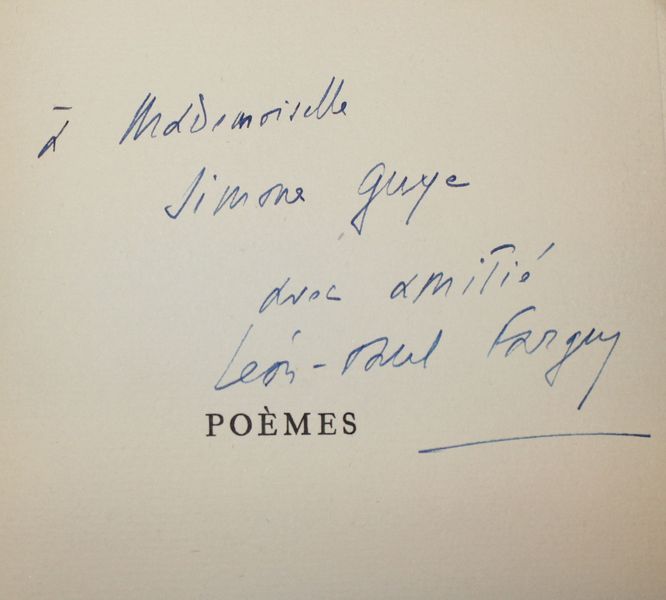 à Mademoiselle
Simone Guye
avec amitié
Léon-Paul Fargue
POÈMES